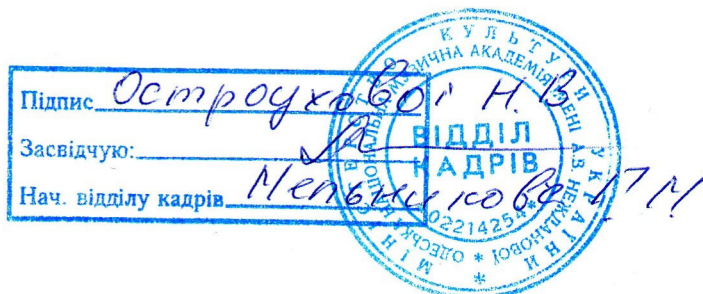 Підпис Остроухової Н.В
Засвідчую:
Нач. відділу кадрів Мельникова Г М
МІНІСТЕРСТВО КУЛЬТУРИ УКРАЇНИ *
ОДЕСЬКА НАЦІОНАЛЬНА МУЗИЧНА АКАДЕМІЯ ІМЕНІ А.В. НЕЖДАНОВОЇ *
ВІДДІЛ
КАДРІВ
02214254